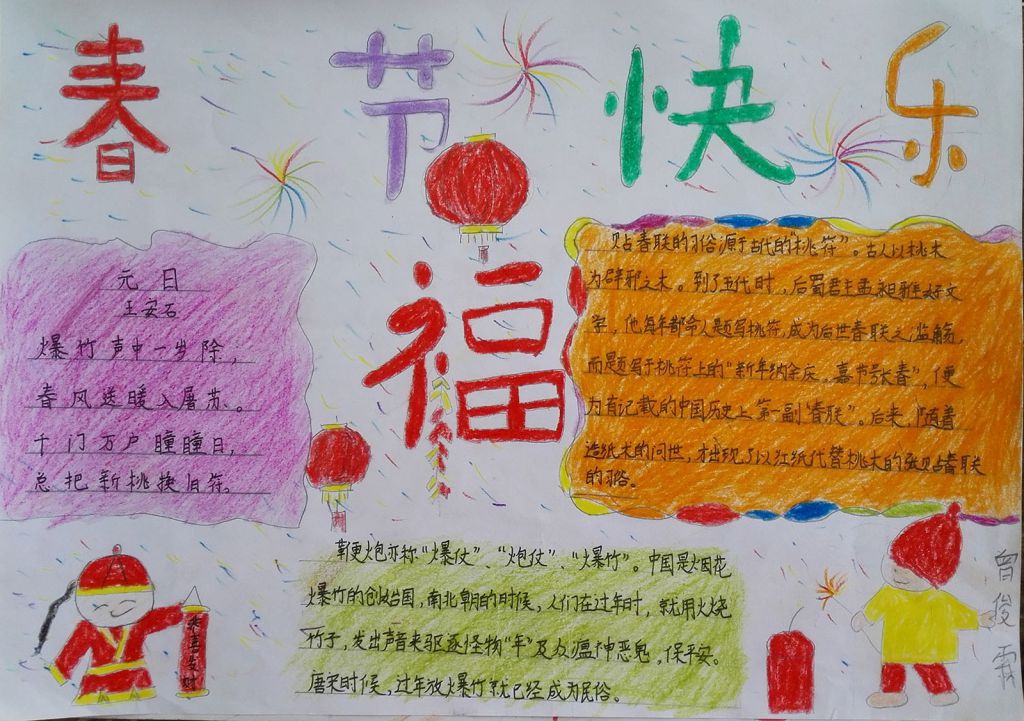 春节快乐
福
元日
王安石
爆竹声中一岁除，
春风送暖入屠苏。
千门万户瞳瞳日，
总把新桃换旧符。
贴春联的习俗源于古代的"桃符"。古人以桃木
为辟邪之木。到了五代时，后蜀君主孟昶雅好文
学，他每年都命人题写桃符，成为后世春联之
而题写于桃符上的"新年纳余庆，嘉节号长春"，便
为有记载的中国历史上第一副"春联"。后来，随着
造纸术的问世，才出现了以红纸代替桃木的张贴春联
的习俗。
鞭炮亦称"爆仗"、"炮仗"、"爆竹"。中国是烟花
爆竹的创始国，南北朝的时候，人们在过年时，就用火烧
竹子，发出声音来驱逐怪物"年"及众瘟神恶鬼，保平安。
唐宋时候，过年放爆竹就已经成为民俗。
恭喜发财
曾俊霖